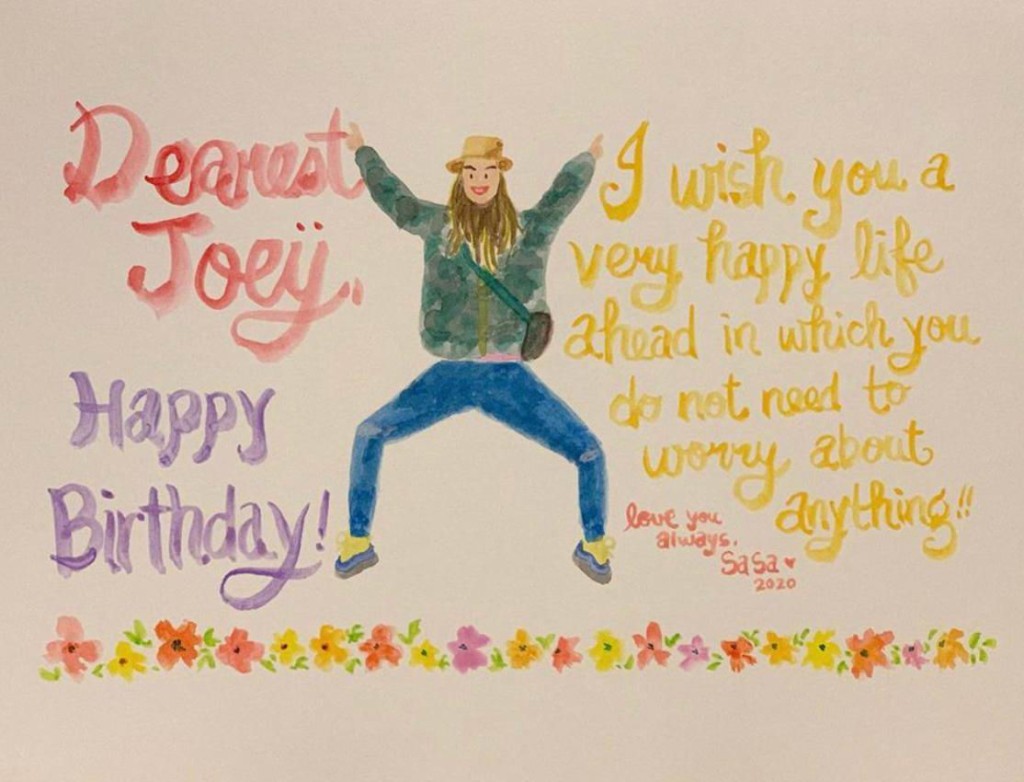 Dearest
Joeÿ.
Happy
Birthday!
I wish you a
very happy life
ahead in which you
do not need to
worry about
anything!!
love you
always.
SaSa ♥
2020